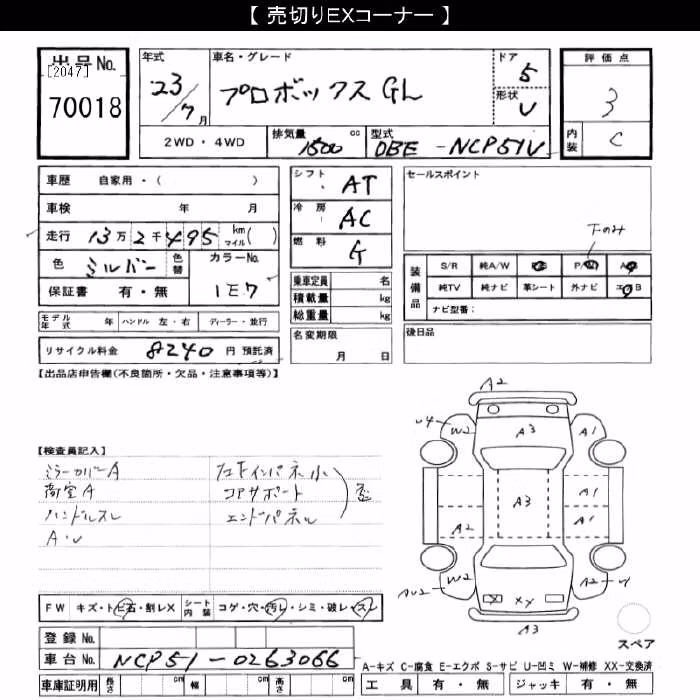 【 売切りEXコーナー 】
出品No.
[2047]
70018
年式
23/7月
車名・グレード
プロボックス GL
ドア
5
形状
V
評価点
3
内装
C
2WD・4WD
排気量 1500 cc
型式 DBE-NCP51V
車歴 自家用・( )
車検 年 月
走行 13万2千495 km マイル( )
色 シルバー 色替
カラーNo.
1E7
保証書 有・無
シフト AT
冷房 AC
燃料 G
乗車定員 名
積載量 kg
総重量 kg
セールスポイント
下のみ
装備品
S/R 純A/W P/S P/W A/B
純TV 純ナビ 革シート 外ナビ エアB
ナビ型番:
モデル年式 年 ハンドル 左・右 ディーラー・並行
名変期限
月 日
後日品
リサイクル料金 8240 円 預託済
【出品店申告欄(不良箇所・欠品・注意事項等)】
【検査員記入】
ミラーカバーA
荷室A
ハンドルスレ
A・U
左下インパネ小
コアサポート
エンドパネル
A2
U4
W2
A3
A1
A3
A1
A2
A1
AU2
W2
X
XY
A2
A3
スペア
FW キズ・ト ビ石・割レX シート内装 コゲ・穴・汚レ・シミ・破レ・スレ
登録No.
車台No. NCP51-0263066
車庫証明用 長さ cm 幅 cm 高さ cm
A-キズ C-腐食 E-エクボ S-サビ U-凹ミ W-補修 XX-交換済
工具 有・無 ジャッキ 有・無